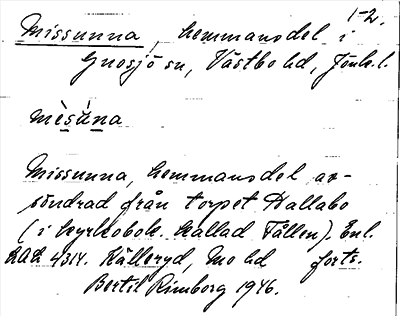 1-2.
Missunna, hemmansdel i
Gnosjö sn, Västbo hd, Jönk. l.
mèsúna
Missunna, hemmansdel av-
söndrad från torpet Hallabo
(i kyrkobok. kallad Fållen). Enl.
4314. Källeryd, Mo hd forts.
Bertil Rimborg 1946.